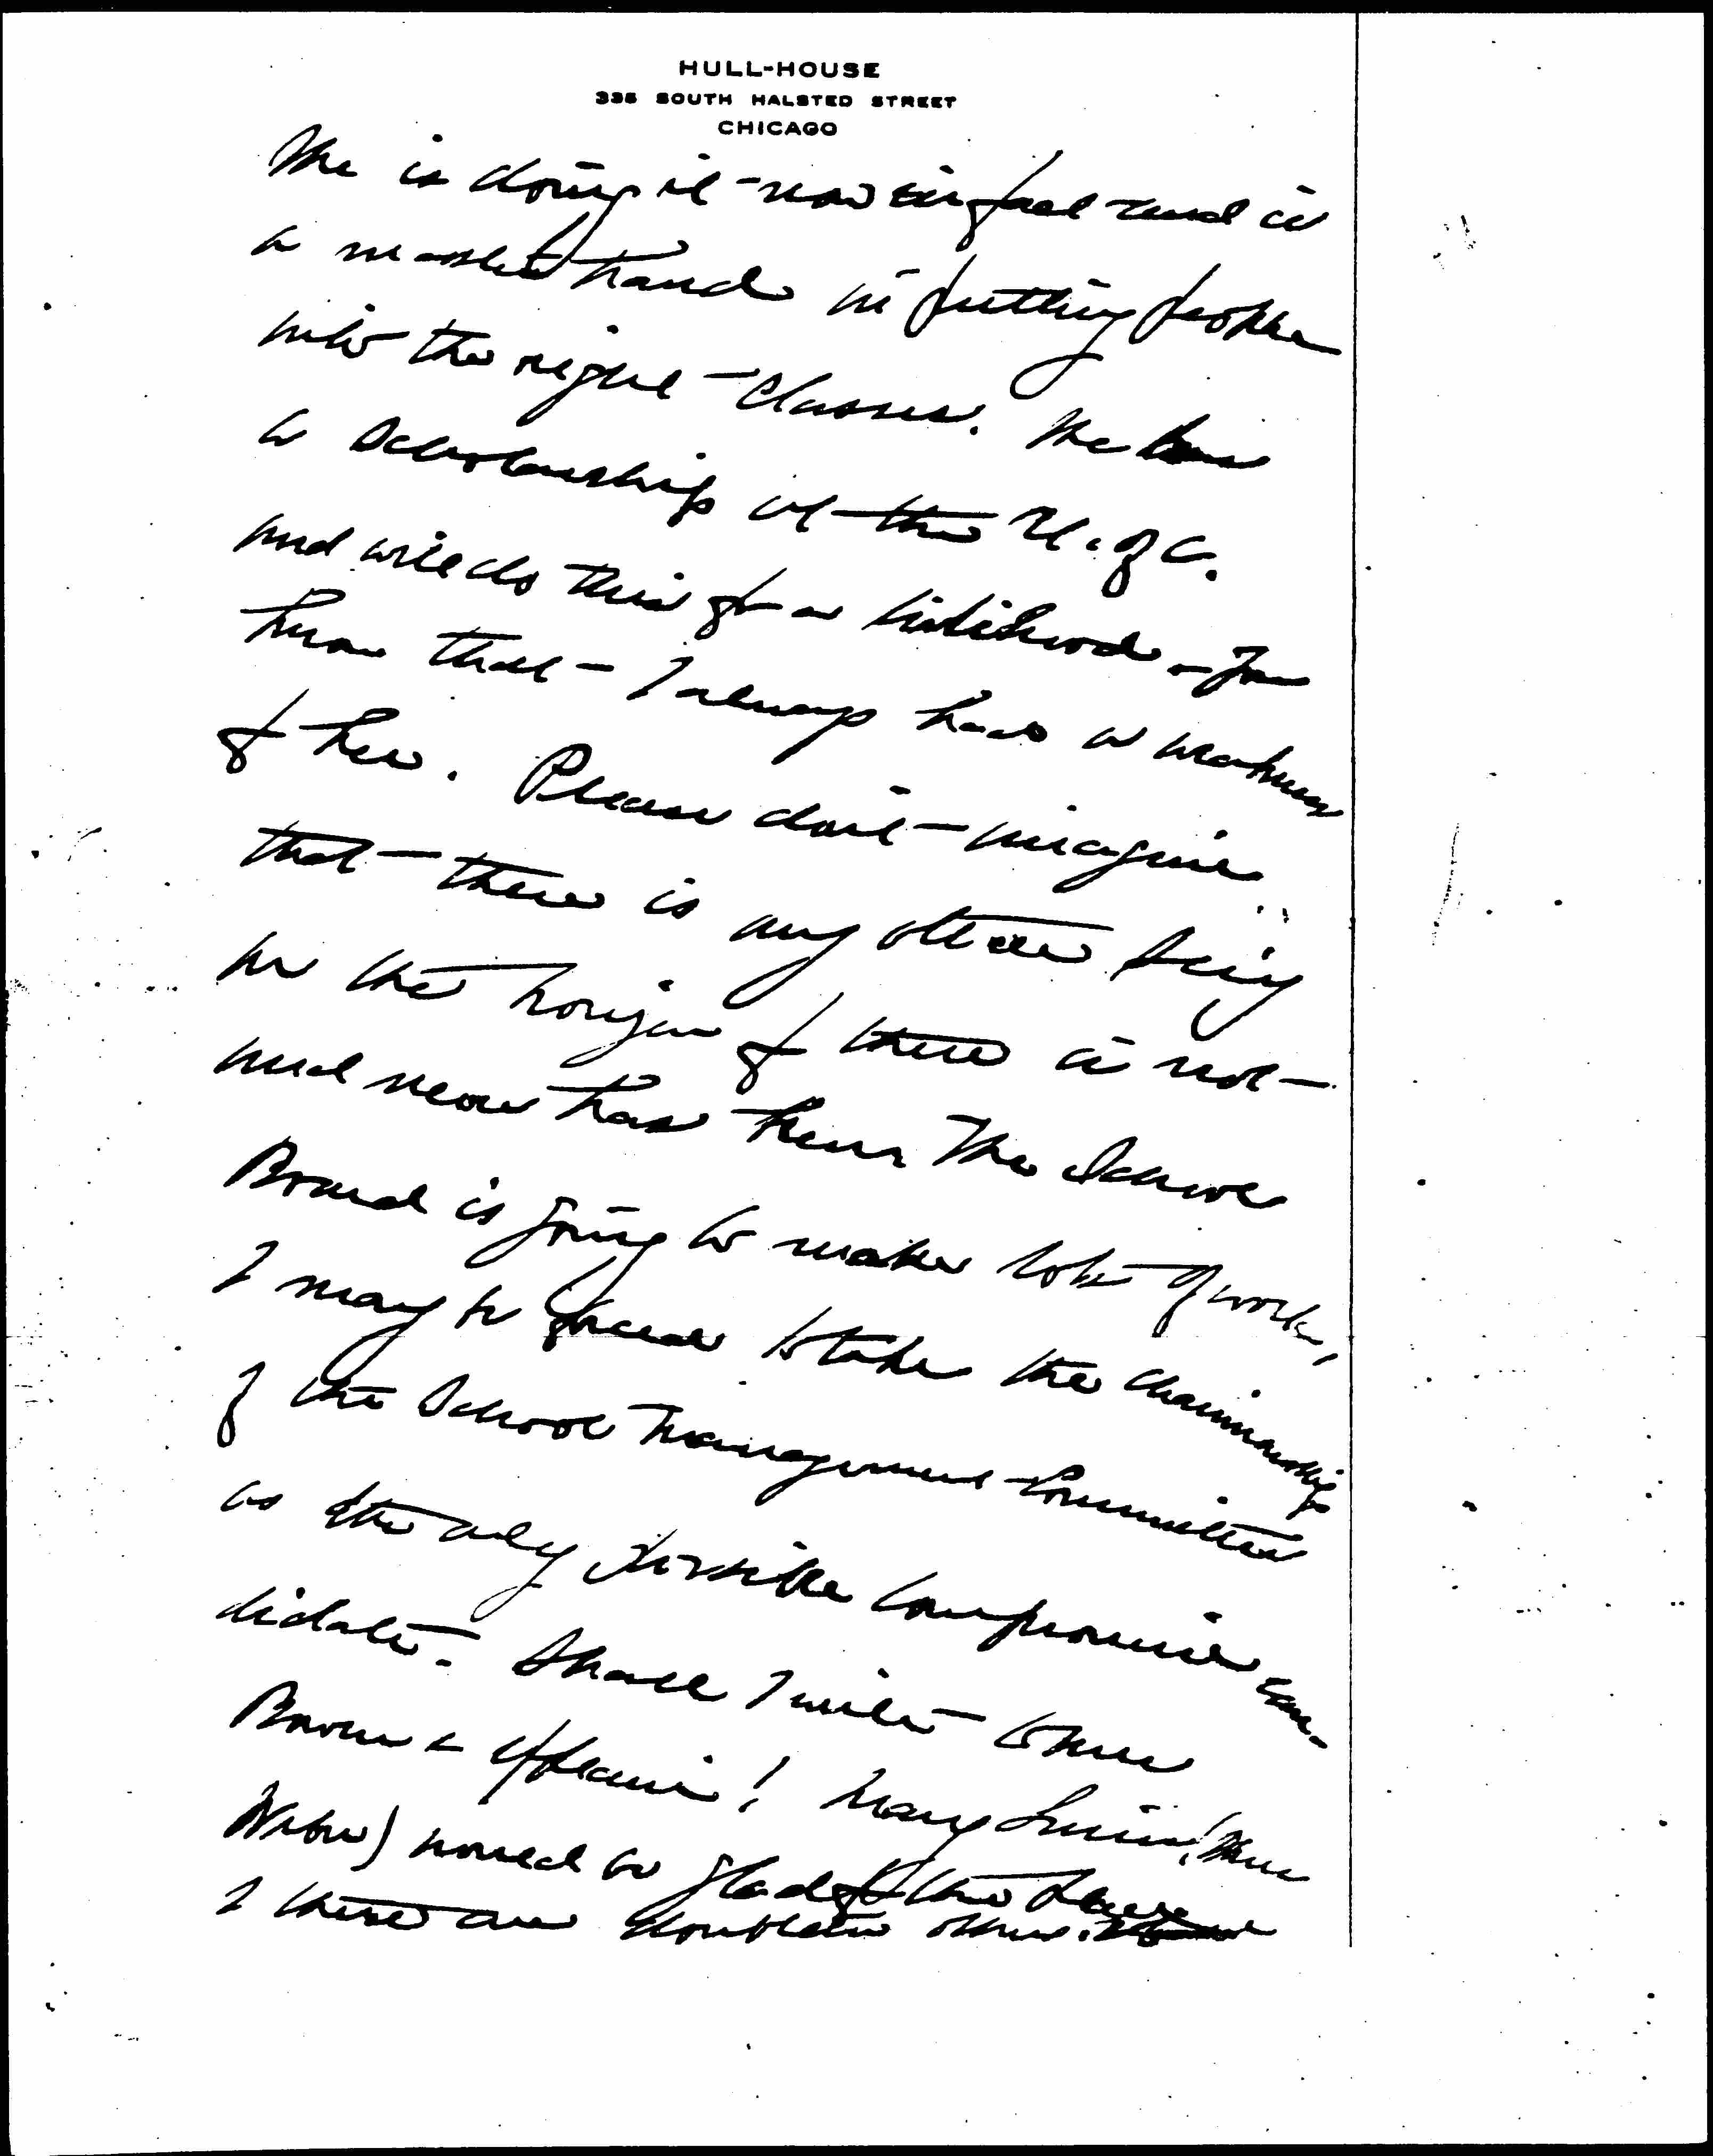 HULL-HOUSE
335 SOUTH HALSTED STREET
CHICAGO
She is doing it now in fact and is
a master hand in putting people
into the right classes. She has
a scholarship at the U. of C.
and will do this for a livelihood
than that I always had a weakness
for her. Please don't imagine
that there is any other being
on the horizon for there is not
and never has been. The School
Board is going to make lots of work,
I may be forced to take the chairmanship
of the School Management Committee
as the only possible compromise can-
didate. Shall I write to Miss
Brown & explain! Mary Smith (Miss
would be glad for the
& there are doubtless others.